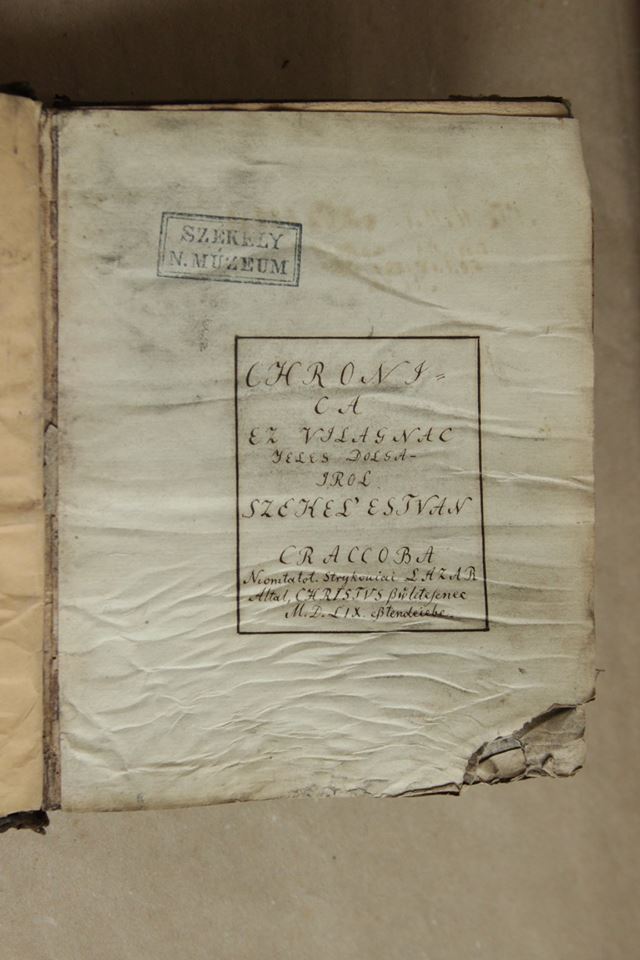 SZÉKELY
N. MÚZEUM
CHRONI=
CA
EZ VILAGNAC
IELES DOLGA-
IROL
SZEKEL' ESTVAN
CRACCOBA
Niomtatot. Strykouiai LAZAR
Altal, CHRISTVS ßwletesenec
M.D.LIX. eßtendeiebe.